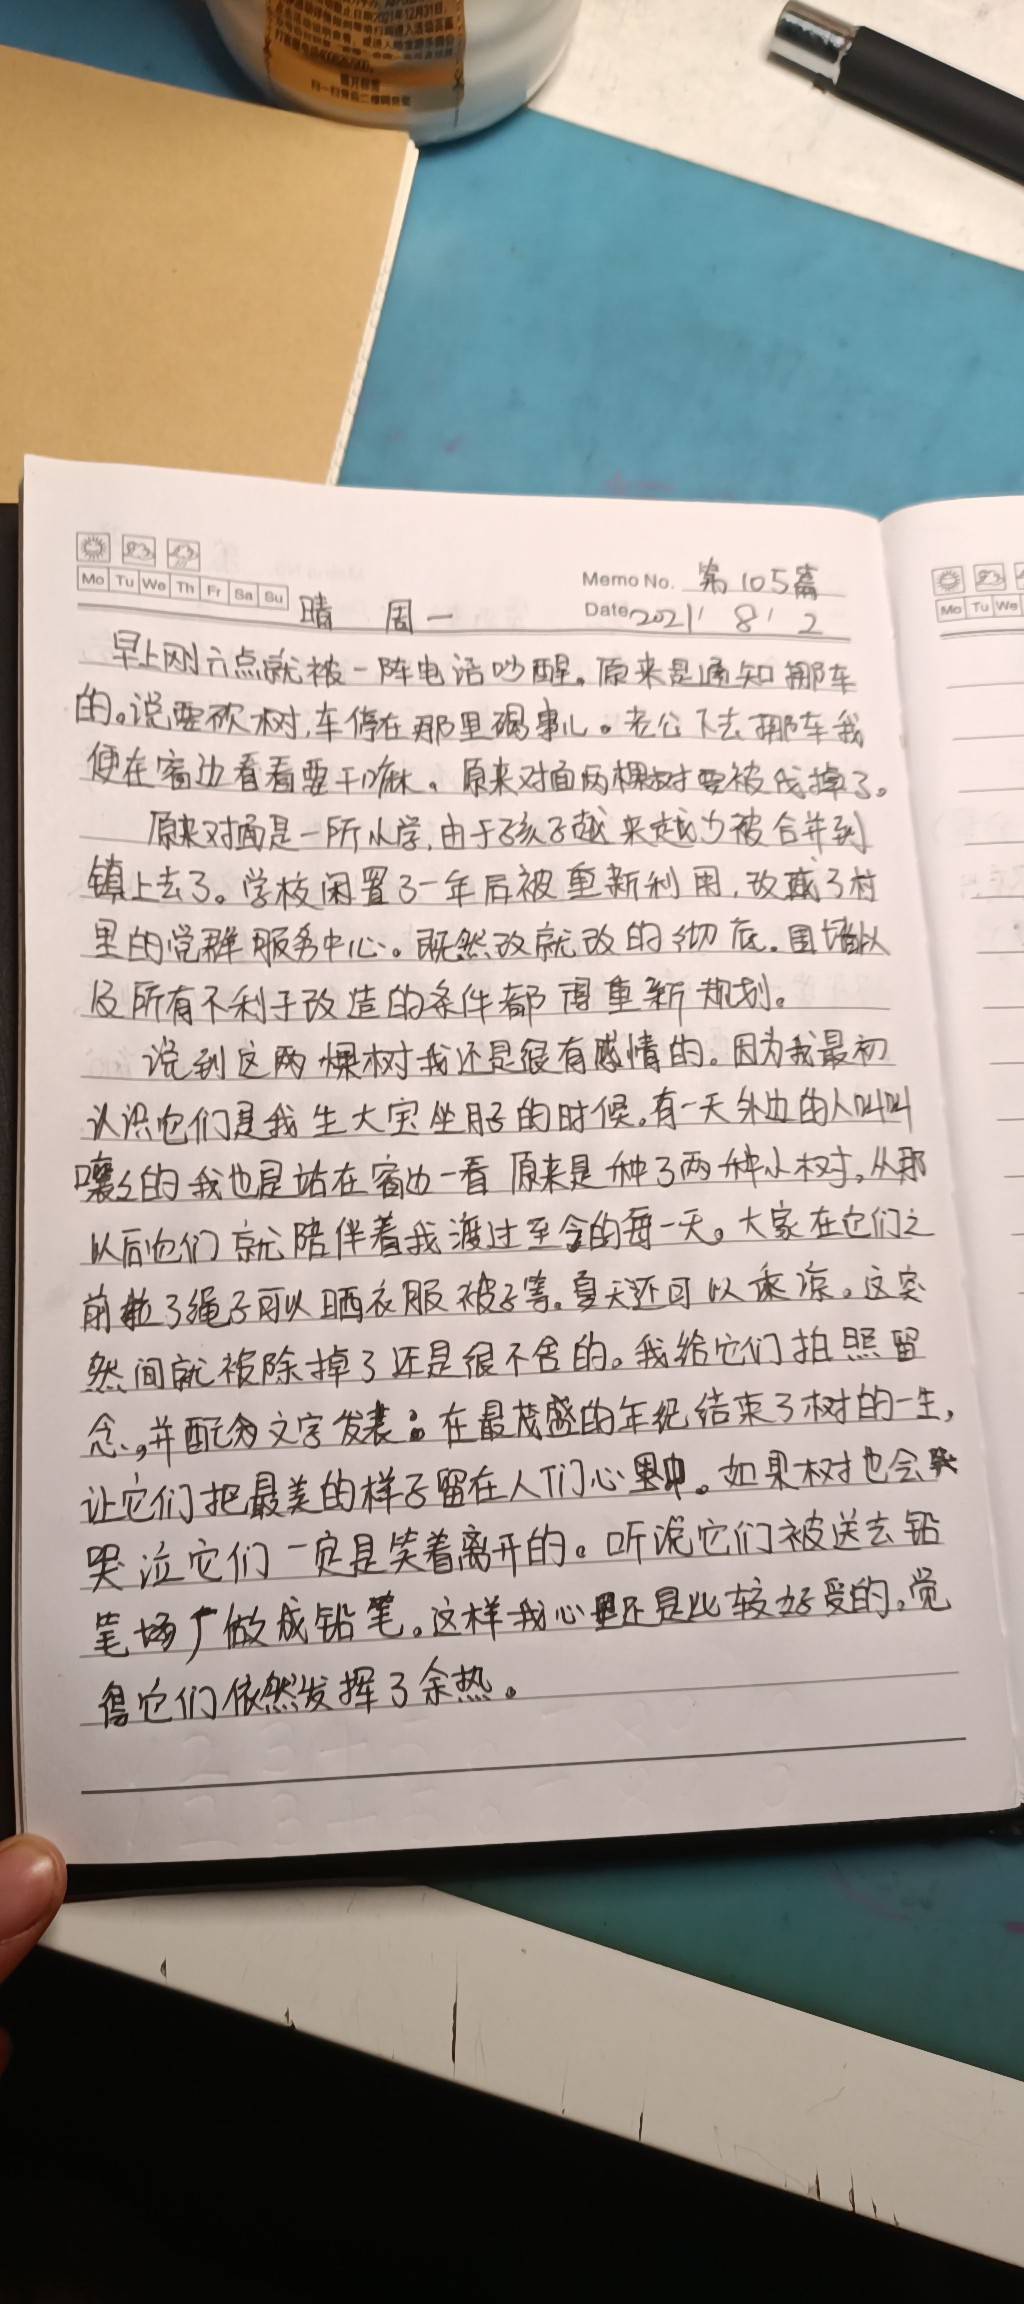 Mo Tu We Th Fr Sa Su
Memo No. 第105篇
Date 2021 8 2
晴 周一
早上刚六点就被一阵电话吵醒。原来是通知挪车
的。说要砍树,车停在那里碍事儿。老公下去挪车我
便在窗边看看要干嘛。原来对面两棵树要被伐掉了。
原来对面是一所小学,由于孩子越来越少被合并到
镇上去了。学校闲置了一年后被重新利用,改成了村
里的党群服务中心。既然改就改的彻底。围墙以
及所有不利于改造的条件都得重新规划。
说到这两棵树我还是很有感情的。因为我最初
认识它们是我生大宝坐月子的时候。有一天外边的人叫叫
嚷嚷的我也是站在窗边一看 原来是种了两种小树,从那
以后它们就陪伴着我渡过至今的每一天。大家在它们之
前拉了绳子可以晒衣服被子等。夏天还可以乘凉。这突
然间就被除掉了还是很不舍的。我给它们拍照留
念,并配为文字发表:在最茂盛的年纪结束了树的一生,
让它们把最美的样子留在人们心里中。如果树也会
哭泣它们一定是笑着离开的。听说它们被送去铅
笔场厂做成铅笔。这样我心里还是比较好受的。觉
得它们依然发挥了余热。
Mo Tu We